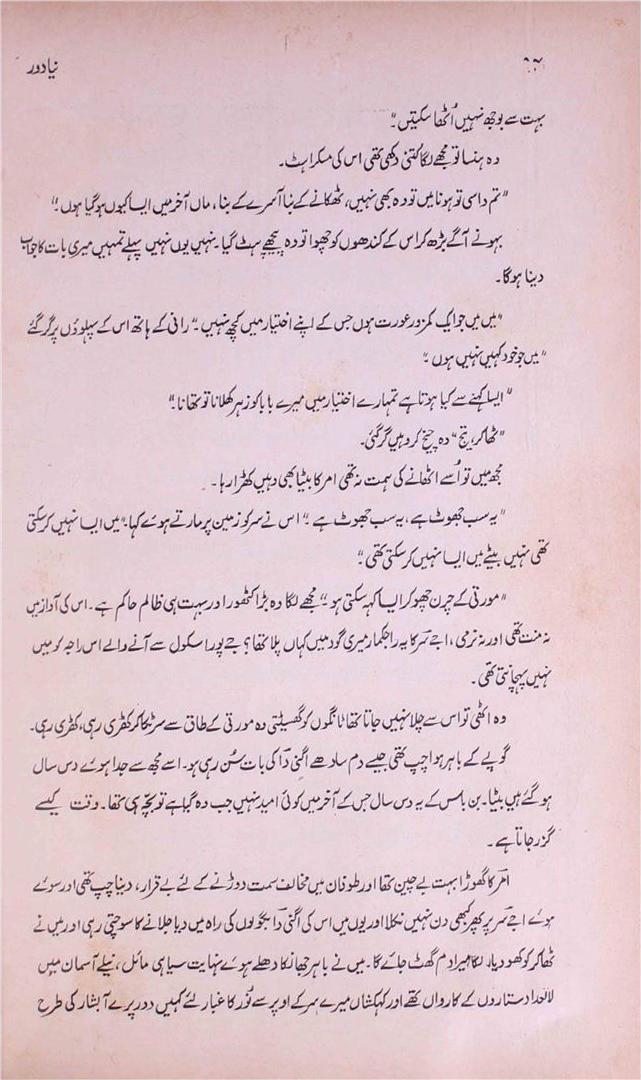 نیا دور
بہت سے بوجھ نہیں اُٹھا سکتیں۔"
وہ ہنسا تو مجھے لگا کتنی دکھی تھی اس کی مسکراہٹ۔
"تم داسی تو ہونا میں تو وہ بھی نہیں، ٹھکانے کے بنا آسرے کے بنا، ماں آخر میں ایسا کیوں ہو گیا ہوں۔"
بہو نے آگے بڑھ کر اس کے کندھوں کو چھوا تو وہ پیچھے ہٹ گیا۔ نہیں یوں نہیں پہلے تمہیں میری بات کا جواب
دینا ہو گا۔
"میں میں جو ایک کمزور عورت ہوں جس کے اپنے اختیار میں کچھ نہیں۔" رانی کے ہاتھ اس کے پہلوؤں پر گر گئے
"میں جو خود کہیں نہیں ہوں۔"
"ایسا کہنے سے کیا ہوتا ہے تمہارے اختیار میں میرے بابا کو زہر کھلانا تو تھا نا۔"
"ٹھاکر، تیج" وہ چیخ کر وہیں گر گئی۔
مجھ میں تو اُسے اٹھانے کی سمت نہ تھی امر کا بیٹا بھی وہیں کھڑا رہا۔
"یہ سب جھوٹ ہے، یہ سب جھوٹ ہے۔" اس نے سر کو زمین پر مارتے ہوئے کہا۔ "میں ایسا نہیں کر سکتی
تھی نہیں بیٹے میں ایسا نہیں کر سکتی تھی۔"
"مورتی کے چرن چھو کر ایسا کہہ سکتی ہو۔" مجھے لگا وہ بڑا کٹھور اور بہت ہی ظالم حاکم ہے۔ اس کی آواز میں
نہ منت تھی اور نہ نرمی، اجے سَر کا یہ راجکمار میری گود میں کہاں پلا تھا؟ جے پورا سکول سے آنے والے اس راجہ کو میں
نہیں پہچانتی تھی۔
وہ اٹھی تو اس سے چلا نہیں جاتا تھا ٹانگوں کو گھسیٹتی وہ مورتی کے طاق سے سر ٹکا کر کھڑی رہی، کھڑی رہی۔
گوپے کے باہر ہوا چپ تھی جیسے دم سادھے اگنی دَا کی بات سُن رہی ہو۔ اسے مجھ سے جدا ہوئے دس سال
ہو گئے ہیں بیٹا۔ بن باس کے یہ دس سال جس کے آخر میں کوئی امید نہیں جب وہ گیا ہے تو بچہ ہی تھا۔ وقت کیسے
گزر جاتا ہے۔
امَر کا گھوڑا بہت بے چین تھا اور طوفان میں مخالف سمت دوڑنے کے لئے بے قرار، دنیا چپ تھی اور سوئے
ہوئے اجے سَر پر پھر کبھی دن نہیں نکلا اور یوں میں اس کی اگنی دَا بگولوں کی راہ میں دیا جلانے کا سوچتی رہی اور میں نے
ٹھاکر کو کھو دیا، لگا میرا دم گھٹ جائے گا۔ میں نے باہر جھانکا دھلے ہوئے نہایت سیاہی مائل، نیلے آسمان میں
لاتعداد ستاروں کے کارواں تھے اور کہکشاں میرے سر کے اوپر سے نُور کا غبار لئے کہیں دور پرے آبشار کی طرح